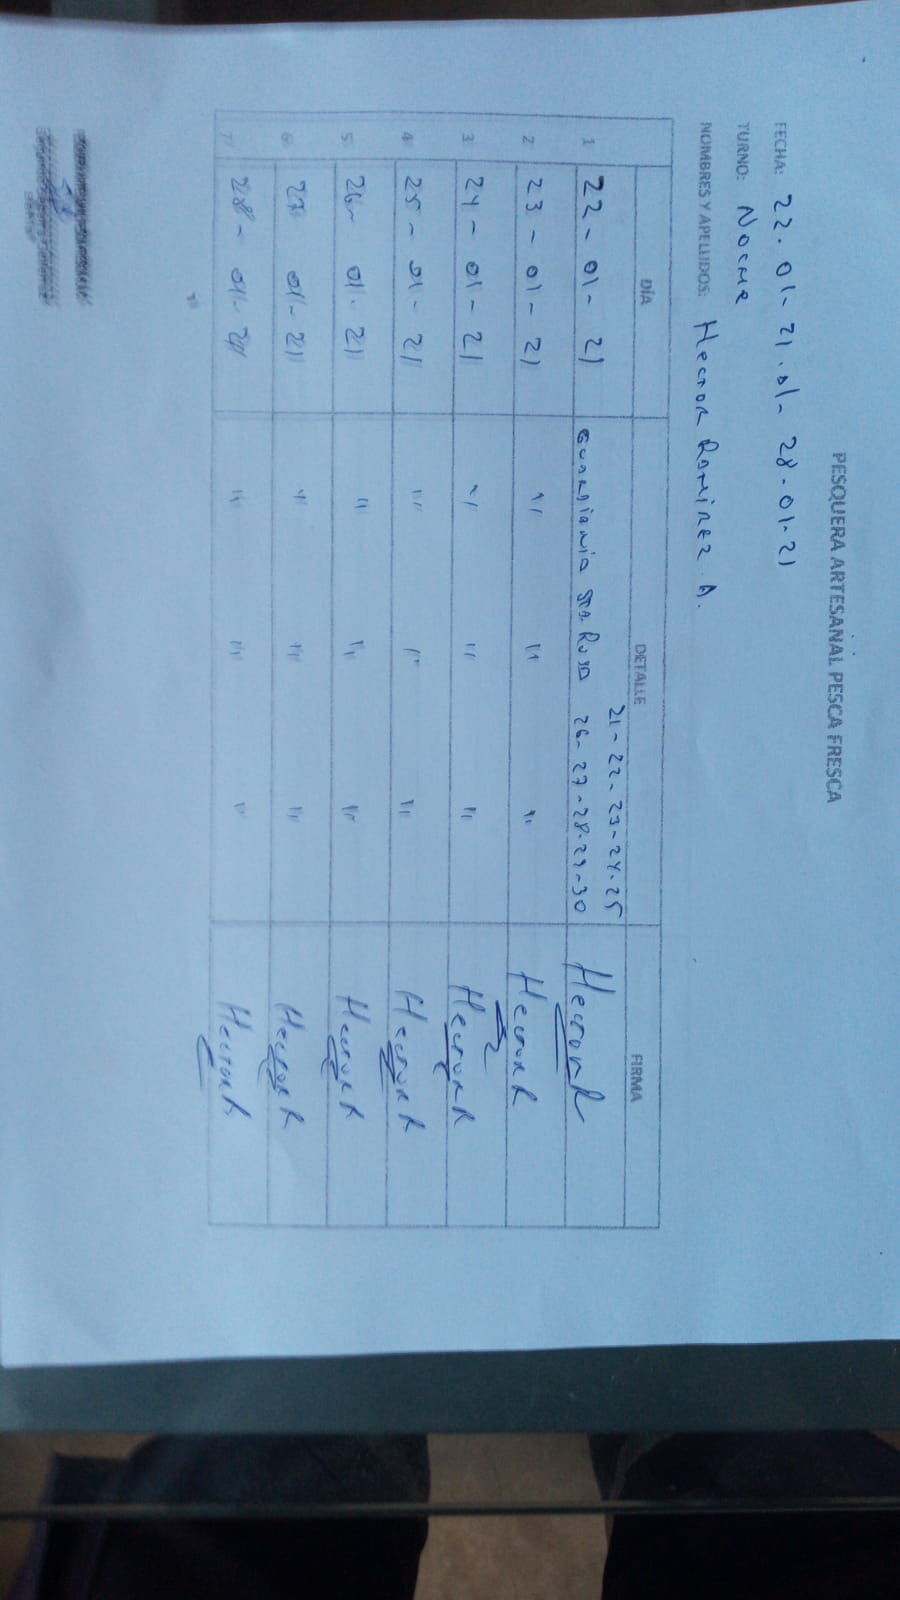 PESQUERA ARTESANAL PESCA FRESCA
FECHA: 22-01-21 al- 28-01-21
TURNO: Noche
NOMBRES Y APELLIDOS: Hector Ramirez A.
DÍA DETALLE FIRMA
21-22-23-24-25
1 22-01-21 Guardiania Sta Rosa 26-27-28-29-30 Hector R
2 23-01-21 " " " Hector R
3 24-01-21 " " " Hector R
4 25-01-21 " " " Hector R
5 26-01-21 " " " Hector R
6 27-01-21 " " " Hector R
7 28-01-21 " " " Hector R